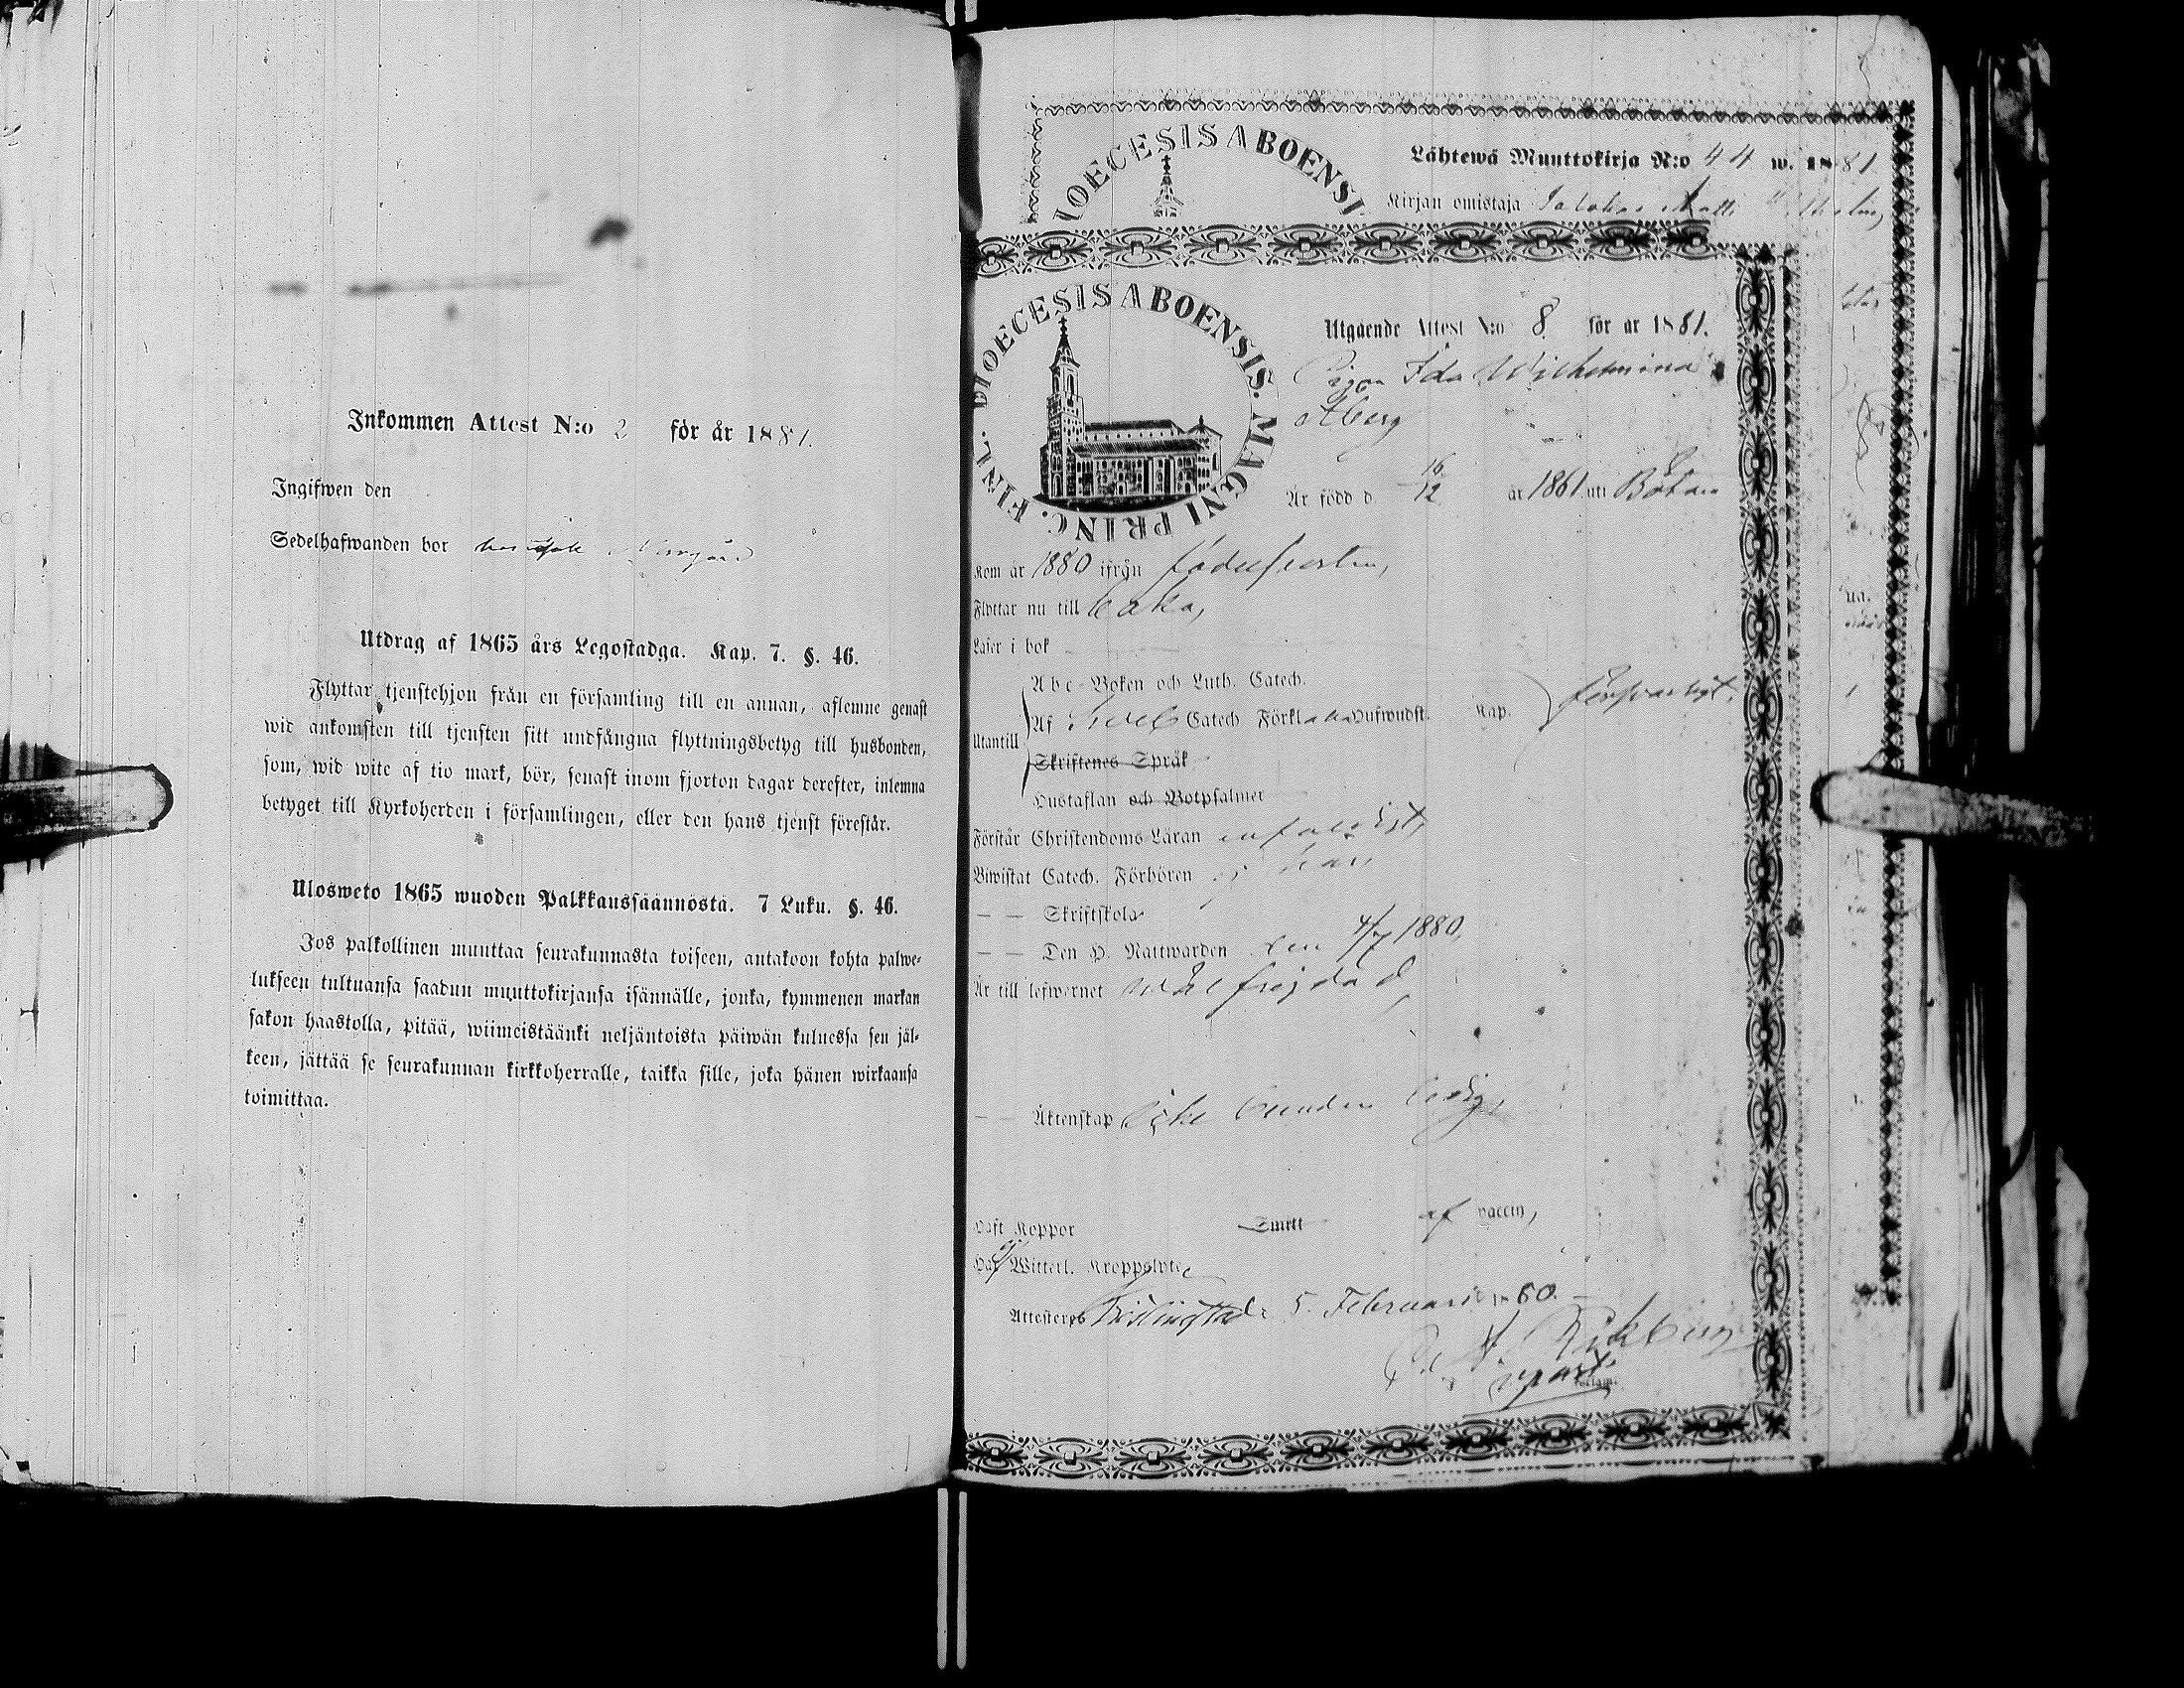 Inkommen Attest N:o 2 för år 1881.
Ingifwen den
Sedelhafwanden bor
Utdrag af 1865 års Legostadga. Kap. 7. §. 46.
Flyttar tjenstehjon från en församling till en annan, aflemne genast
wid ankomsten till tjensten sitt undfångna flyttningsbetyg till husbonden,
som, wid wite af tio mark, bör, senast inom fjorton dagar derefter, inlemna
betyget till Kyrkoherden i församlingen, eller den hans tjenst förestår.
Ulosweto 1865 wuoden Palkkaussäännöstä. 7 Luku. §. 46.
Jos palkollinen muuttaa seurakunnasta toiseen, antakoon kohta palwe-
lukseen tultuansa saadun muuttokirjansa isännälle, jonka, kymmenen markan
sakon haastolla, pitää, wiimeistäänki neljäntoista päiwän kuluessa sen jäl-
keen, jättää se seurakunnan kirkkoherralle, taikka sille, joka hänen wirkaansa
toimittaa.
IOECESIS ABOENSI
Lähtewä Muuttokirja N:o 44 w. 1881
Kirjan omistaja Matti
DIOECESIS ABOENSIS. MAGNI PRINC. FINL.
Utgående Attest N:o 8 för år 1881.
Pigan Ida Wilhelmina
Åberg
Är född d. 16/12 år 1861 uti
Kom år 1880 ifrån födelseorten,
Flyttar nu till
Läser i bok
Utantill
Abc-Boken och Luth. Catech.
Af Sveb Catech Förklar Hufwudst. Kap. försvarligt,
Skriftenes Språk
Hustaflan och Botpsalmer
Förstår Christendoms-Läran enfaldigt,
Biwistat Catech. Förhören ej här,
— — Skriftskola
— — Den H. Nattwarden den 4/7 1880,
Är till lefwernet wälfrejdad,
— — Äktenskap icke bunden ledig,
Haft Koppor Smitt af vaccin,
Haf ej Witterl. Kroppslyte
Attesteras Kristinestad 5. Februari 18 80.